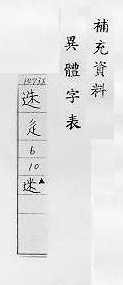 補充資料
異體字表
迷
辵
6
10
迷▲